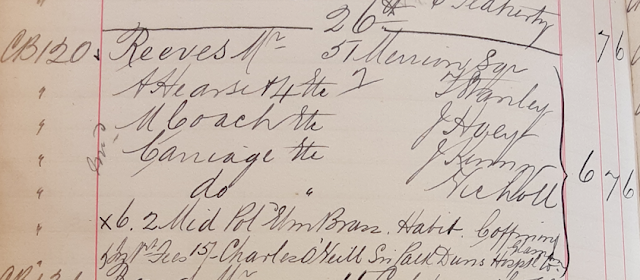 26th P Flaherty
CB120 Reeves Mr 51 Merrion Sqr 76
" A Hearse & 4 &c Stanley
" M Coach &c J Hoey
" Carriage &c J Kinn
" do " Nicholl 6 76
" x 6.2 Mid Pol Elm Brass. Habit. Coffining
Fees 15/- Charles O'Neill Sir Patk Duns Hospl